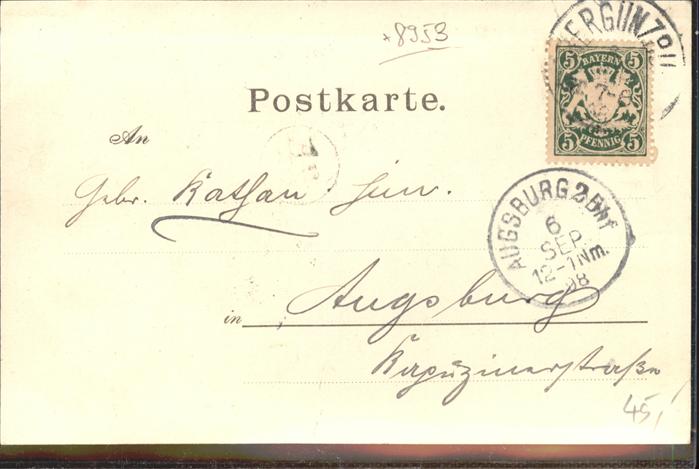 *8953
BAYERN
5 5
5 5
PFENNIG
7-8
Postkarte.
An
Gebr. Kathan jun.
AUGSBURG 2 Bhf
6
SEP.
12-1 Nm.
98
in Augsburg
Kapuzinerstraße
45,